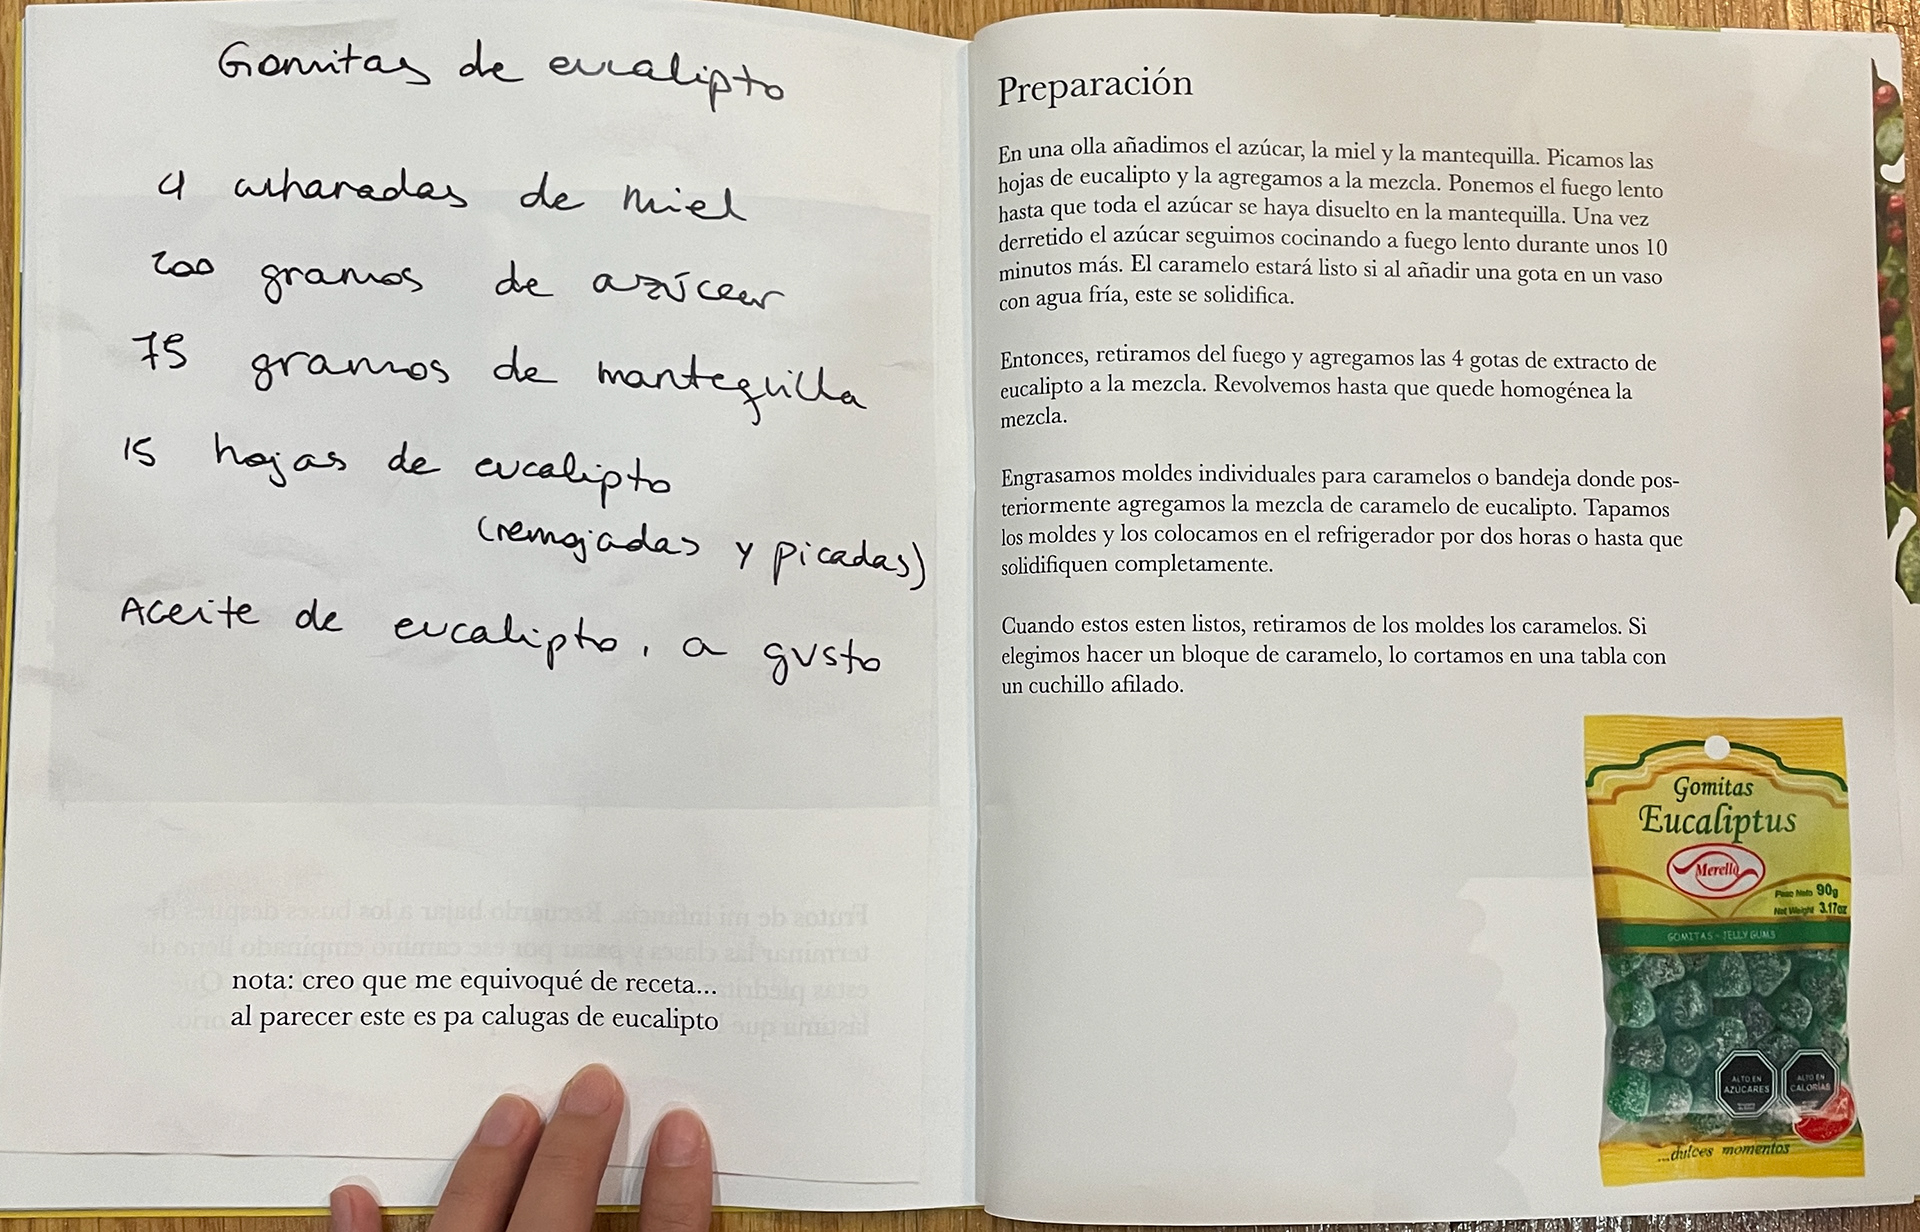 Gomitas de eucalipto
4 cucharadas de miel
200 gramos de azúcar
75 gramos de mantequilla
15 hojas de eucalipto
(remojadas y picadas)
Aceite de eucalipto, a gusto
nota: creo que me equivoqué de receta...
al parecer este es pa calugas de eucalipto
Preparación
En una olla añadimos el azúcar, la miel y la mantequilla. Picamos las
hojas de eucalipto y la agregamos a la mezcla. Ponemos el fuego lento
hasta que toda el azúcar se haya disuelto en la mantequilla. Una vez
derretido el azúcar seguimos cocinando a fuego lento durante unos 10
minutos más. El caramelo estará listo si al añadir una gota en un vaso
con agua fría, este se solidifica.
Entonces, retiramos del fuego y agregamos las 4 gotas de extracto de
eucalipto a la mezcla. Revolvemos hasta que quede homogénea la
mezcla.
Engrasamos moldes individuales para caramelos o bandeja donde pos-
teriormente agregamos la mezcla de caramelo de eucalipto. Tapamos
los moldes y los colocamos en el refrigerador por dos horas o hasta que
solidifiquen completamente.
Cuando estos esten listos, retiramos de los moldes los caramelos. Si
elegimos hacer un bloque de caramelo, lo cortamos en una tabla con
un cuchillo afilado.
Gomitas
Eucaliptus
Merello
Peso Neto 90g
Net Weight 3.17oz
GOMITAS - JELLY GUMS
ALTO EN
AZÚCARES
ALTO EN
CALORÍAS
...dulces momentos